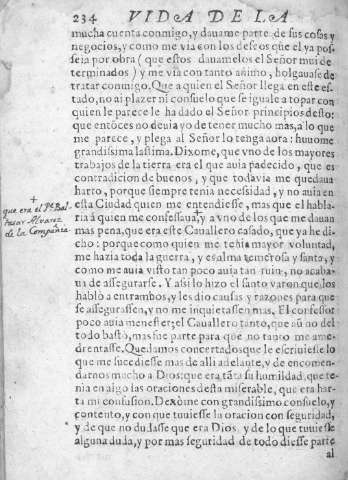 234 VIDA DE LA
mucha cuenta conmigo, y dauame parte de sus cosas y
negocios, y como me via con los deseos que el ya pos-
seia por obra (que estos dauamelos el Señor mui de-
terminados) y me via con tanto animo, holgauase de
tratar conmigo. Que a quien el Señor llega en este es-
tado, no ai plazer ni consuelo que se iguale a topar con
quien le parece le ha dado el Señor principios desto:
que entõces no deuia yo de tener mucho mas, a lo que
me parece, y plega al Señor lo tenga aora: huuome
grandissima lastima. Dixome, que vno de los mayores
trabajos de la tierra era el que auia padecido, que es
contradicion de buenos, y que todavia me quedaua
harto, porque siempre tenia necessidad, y no auia en
esta Ciudad quien me entendiesse, mas que el habla-
ria á quien me confessaua, y a vno de los que me dauan
mas pena, que era este Cauallero casado, que ya he di-
cho: porque como quien me tehia mayor voluntad,
me hazia toda la guerra, y es alma temerosa y santa, y
como me auia visto tan poco auia tan ruin, no acaba-
ua de assegurarse. Y assi lo hizo el santo varon, que los
habló a entrambos, y les dio causas y razones para que
se assegurassen, y no me inquietassen mas. El confessor
poco auia menester, el Cauallero tanto, que aũ no del
todo bastò, mas fue parte para que no tanto me ame-
drentasse. Quedamos concertados que le escriuiesse lo
que me sucediesse mas de alli adelante, y de encomen-
darnos mucho a Dios: que era tãta su humildad, que te-
nia en algo las oraciones desta miserable, que era har-
ta mi confusion. Dexòme con grandissimo consuelo, y
contento, y con que tuuiesse la oracion con seguridad,
y de que no dudasse que era Dios, y de lo que tuuiesse
alguna duda, y por mas seguridad de todo diesse parte
al
+
que era el Pe. Bal-
tasar Alvarez
de la Compañia